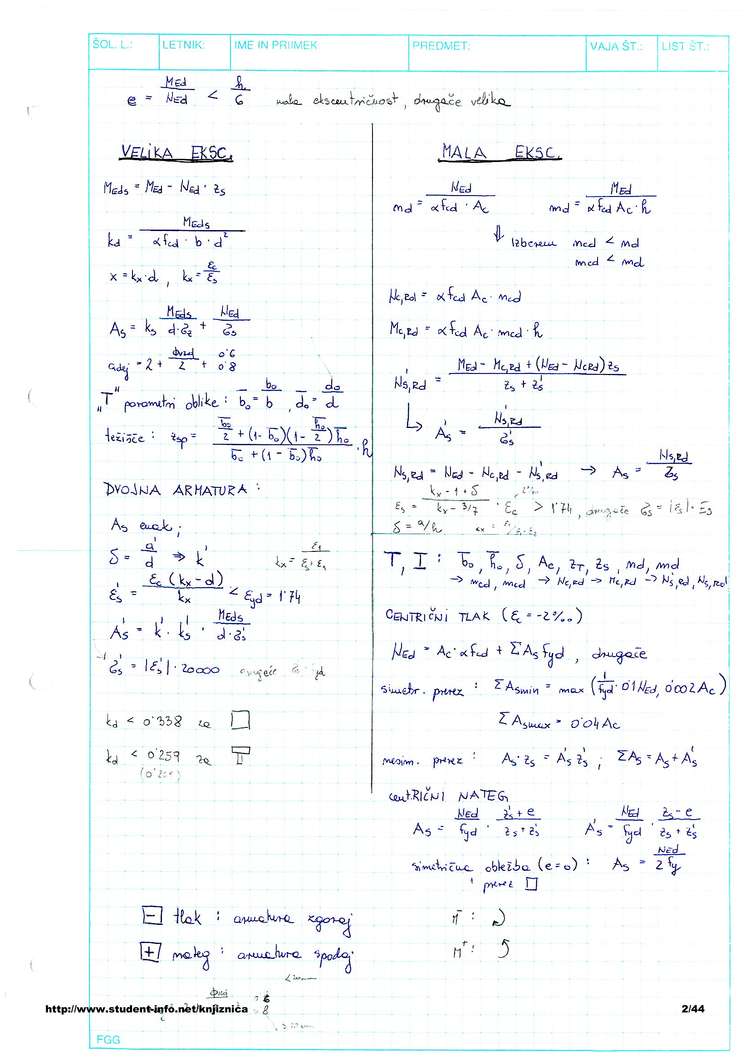 ŠOL. L.: LETNIK: IME IN PRIIMEK PREDMET: VAJA ŠT.: LIST ŠT.:
e = MEd / NEd < h / 6 mala ekscentričnost, drugače velika
VELIKA EKSC.
MEds = MEd - NEd · zs
kd = MEds / αfcd · b · d²
x = kx · d , kx = εc / εs
As = ks MEds / d·σs + NEd / σs
"T" parametri oblike : b̄o = bo / b , d̄o = do / d
težišče : zsp = b̄o / 2 + (1 - b̄o)(1 - h̄o / 2) h̄o / b̄o + (1 - b̄o) h̄o · h
DVOJNA ARMATURA :
As enak ;
δ = a' / d ⇒ k'
ε's = εc (kx - d) / kx < εyd = 1'74
A's = k' · k's · MEds / d·σ's
σ's = |ε's| · 20000 drugače
kd < 0'338 za □
kd < 0'259 za T
MALA EKSC.
md = NEd / αfcd · Ac md = MEd / αfcd Ac · h
⇓ Izberem mcd < md
mcd < md
Nc,Rd = αfcd Ac · mcd
Mc,Rd = αfcd Ac · mcd · h
N's,Rd = MEd - Mc,Rd + (NEd - NcRd) zs / zs + z's
↳ A's = N's,Rd / σ's
Ns,Rd = NEd - Nc,Rd - N's,Rd → As = Ns,Rd / σs
εs = kx - 1 + δ / kx - 3/7 · εc > 1'74, drugače σs = |εs| · Es
δ = a/h
T, I : b̄o, h̄o, δ, Ac, zT, zs, md, md
→ mcd, mcd → Nc,Rd → Mc,Rd → N's,Rd, Ns,Rd
CENTRIČNI TLAK (εc = -2‰)
NEd = Ac · αfcd + ΣAs fyd , drugače
simetr. prerez : ΣAsmin = max (1 / fyd · 0'1 NEd, 0'002 Ac)
ΣAsmax = 0'04 Ac
nesim. prerez : As · zs = A's z's ; ΣAs = As + A's
CENTRIČNI NATEG
As = NEd / fyd · z's + e / zs + z's A's = NEd / fyd · zs - e / zs + z's
simetrična obtežba (e=0) : As = NEd / 2 fy
prerez □
⊟ tlak : armatura zgoraj M⁻ :
⊞ nateg : armatura spodaj M⁺ :
http://www.student-info.net/knjiznica 2/44
FGG